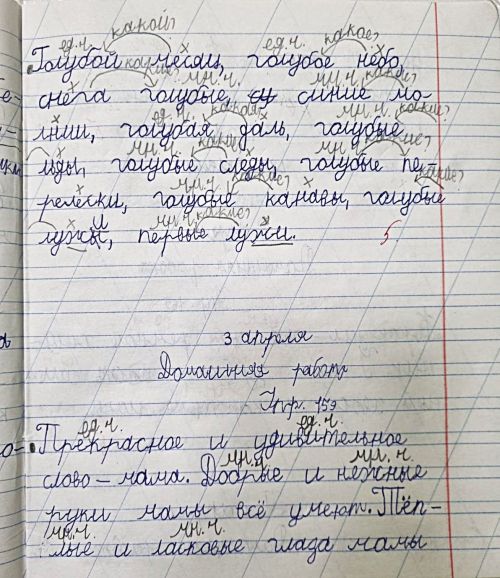 какой? какое?
ед.ч. х ед.ч. х
Голубой месяц, голубое небо,
х какие? мн.ч. мн.ч. какие?
снега голубые, синие мо-
х ед.ч. какая? х мн.ч. какие?
лнии, голубая даль, голубые
х мн.ч. какие? х мн.ч. какие?
льды, голубые следы, голубые пе-
х мн.ч. какие? х какие?
релески, голубые канавы, голубые
х и мн.ч. какие? х
лужы, первые лужи. 5
3 апреля
Домашняя работа
Упр. 159
ед.ч. ед.ч.
Прекрасное и удивительное
мн.ч. мн.ч.
слово – мама. Добрые и нежные
руки мамы всё умеют. Тёп-
мн.ч. мн.ч.
лые и ласковые глаза мамы